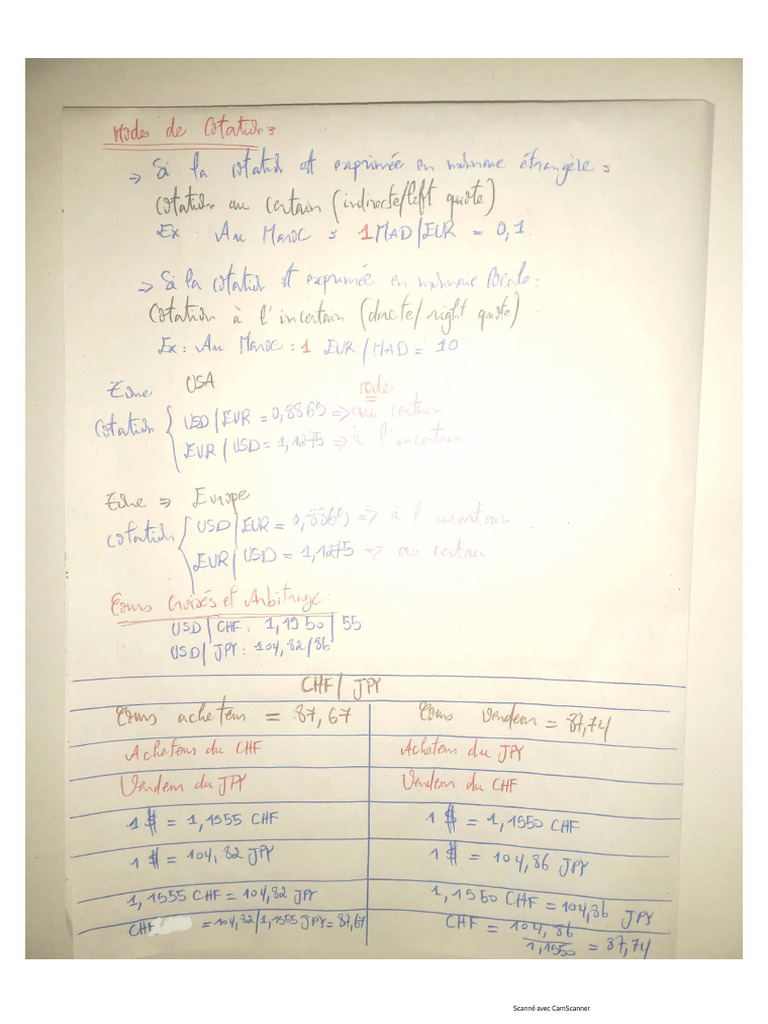 Modes de Cotations
=> Si la cotation est exprimée en monnaie étrangère :
cotation au certain (indirecte/left quote)
Ex : Au Maroc : 1 MAD/EUR = 0,1
=> Si la cotation est exprimée en monnaie locale :
cotation à l'incertain (directe/right quote)
Ex : Au Maroc : 1 EUR/MAD = 10
Zone USA mode
Cotation { USD/EUR = 0,8869 => au certain
EUR/USD = 1,1275 => à l'incertain
Zone => Europe
Cotation { USD/EUR = 0,8869 => à l'incertain
EUR/USD = 1,1275 => au certain
Cours Croisés et Arbitrage :
USD/CHF : 1,1950/55
USD/JPY : 104,82/86
CHF/JPY
Cours acheteur = 87,67 Cours vendeur = 87,74
Acheteur du CHF Acheteur du JPY
Vendeur du JPY Vendeur du CHF
1 $ = 1,1955 CHF 1 $ = 1,1950 CHF
1 $ = 104,82 JPY 1 $ = 104,86 JPY
1,1955 CHF = 104,82 JPY 1,1950 CHF = 104,86 JPY
CHF = 104,82/1,1955 JPY = 87,67 CHF = 104,86
1,1950 = 87,74
Scanné avec CamScanner